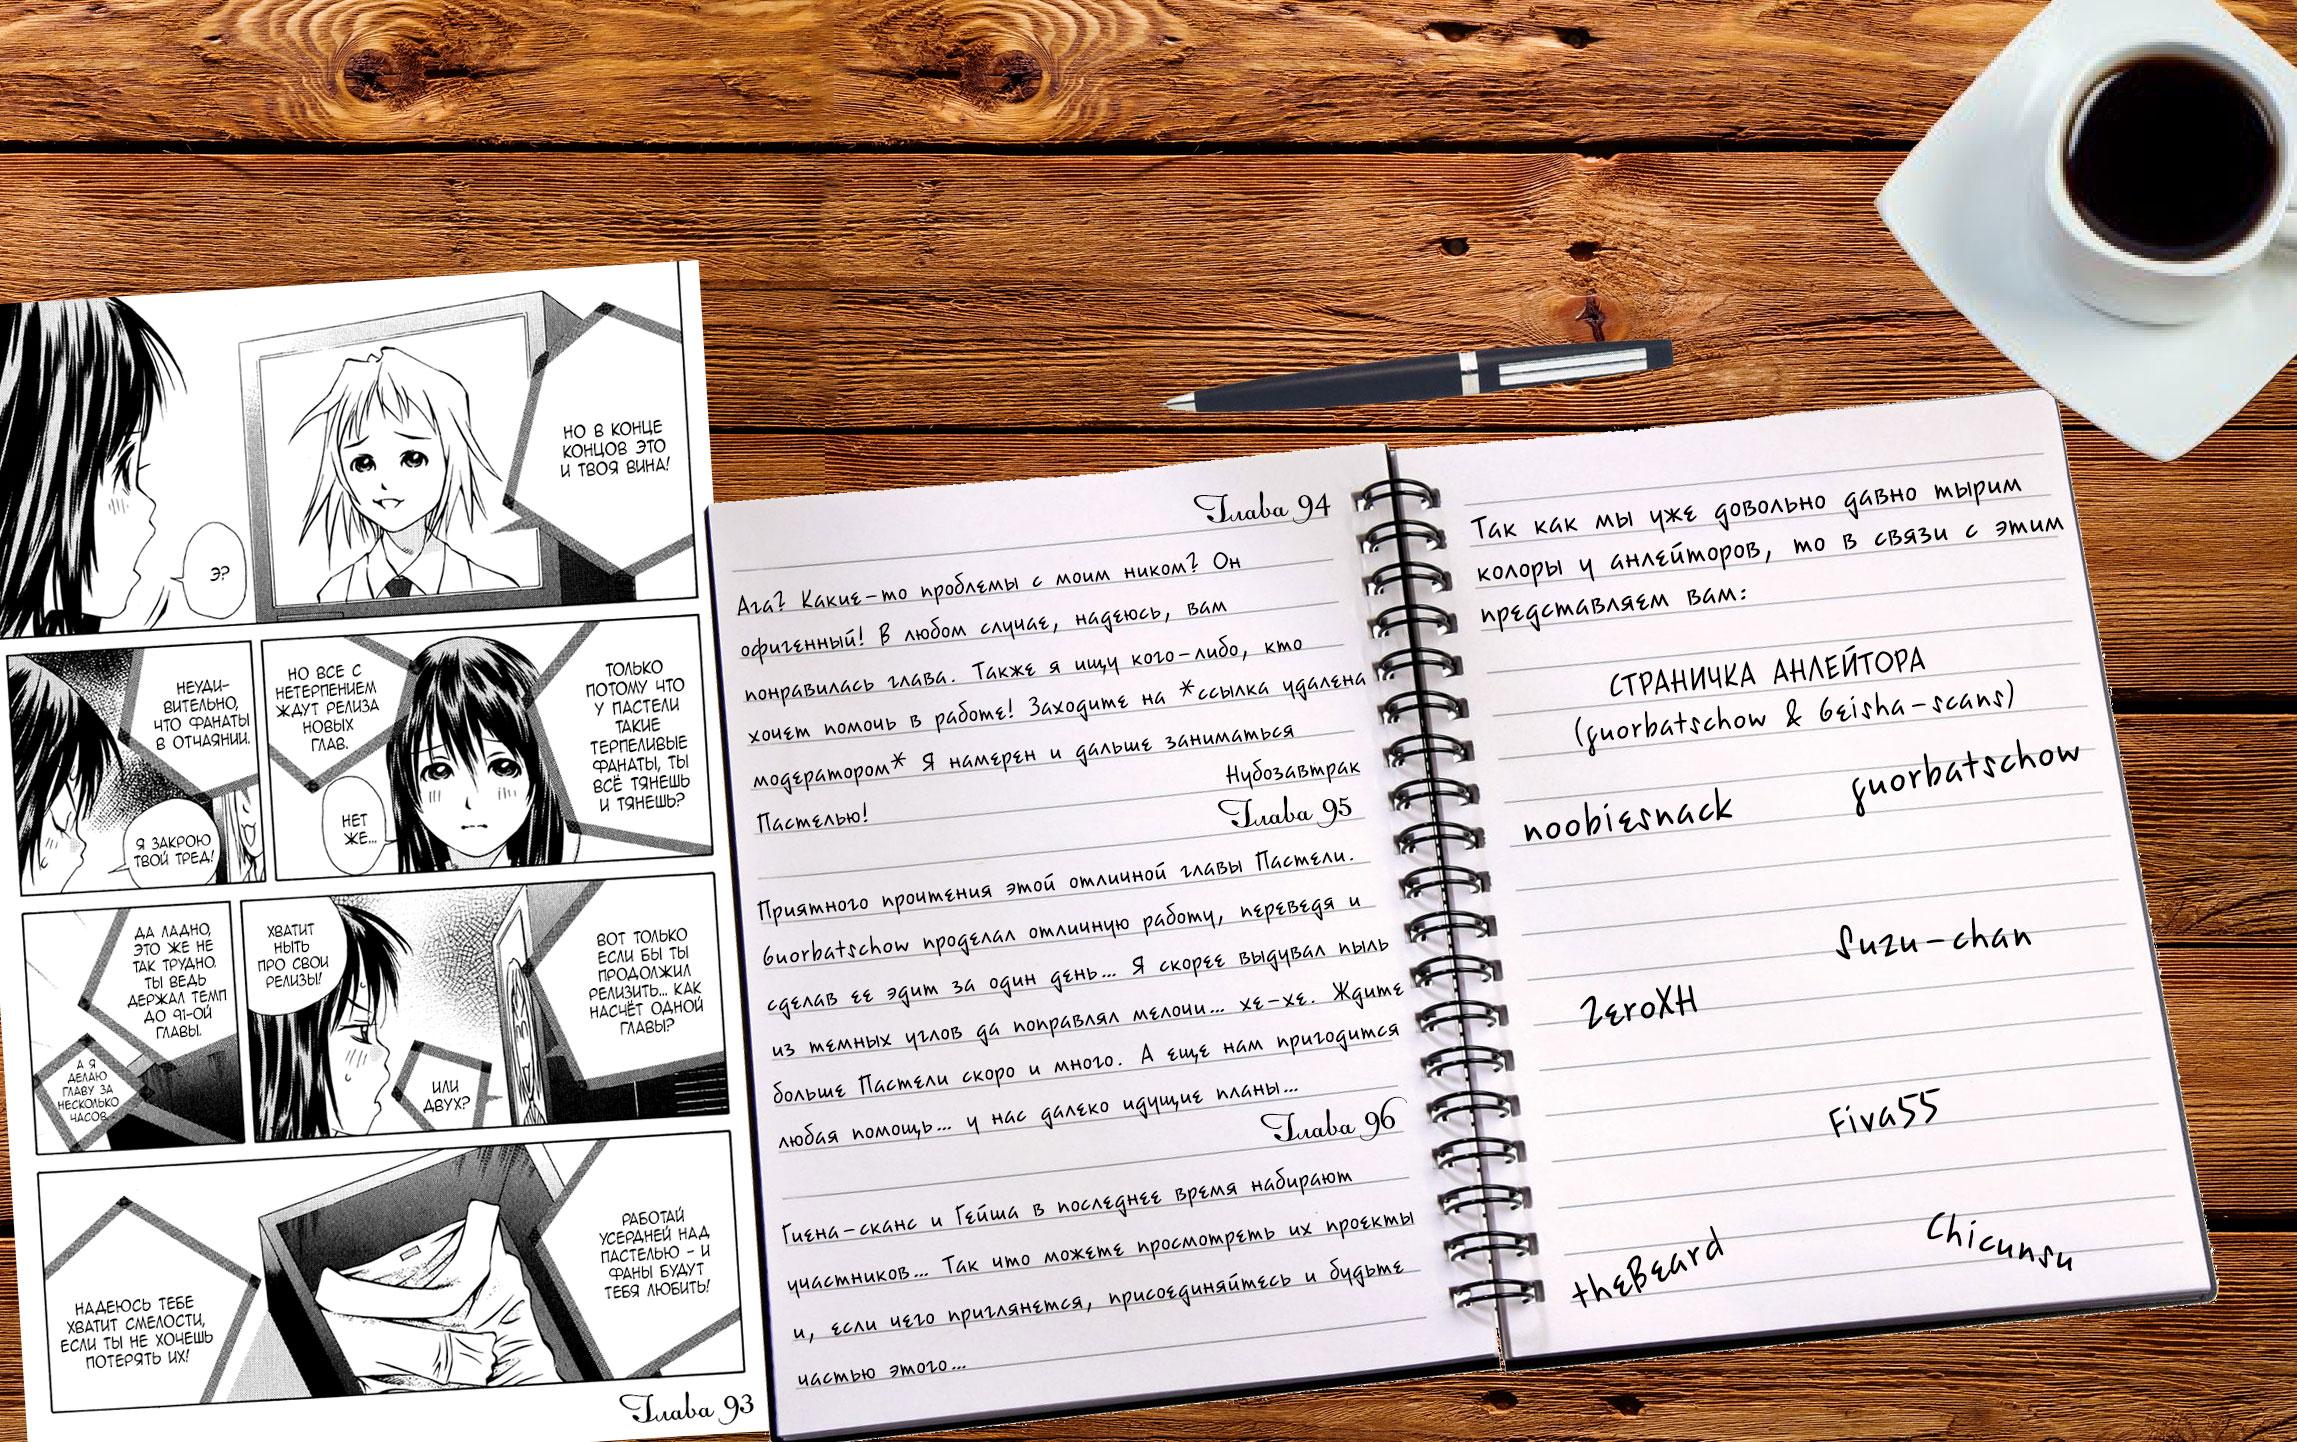 НО В КОНЦЕ
КОНЦОВ ЭТО
И ТВОЯ ВИНА!
Э?
ТОЛЬКО
ПОТОМУ ЧТО
У ПАСТЕЛИ
ТАКИЕ
ТЕРПЕЛИВЫЕ
ФАНАТЫ, ТЫ
ВСЁ ТЯНЕШЬ
И ТЯНЕШЬ?
НО ВСЕ С
НЕТЕРПЕНИЕМ
ЖДУТ РЕЛИЗА
НОВЫХ
ГЛАВ.
НЕТ
ЖЕ...
НЕУДИ-
ВИТЕЛЬНО,
ЧТО ФАНАТЫ
В ОТЧАЯНИИ.
Я ЗАКРОЮ
ТВОЙ ТРЕД!
ВОТ ТОЛЬКО
ЕСЛИ БЫ ТЫ
ПРОДОЛЖИЛ
РЕЛИЗИТЬ... КАК
НАСЧЁТ ОДНОЙ
ГЛАВЫ?
ИЛИ
ДВУХ?
ХВАТИТ
НЫТЬ
ПРО СВОИ
РЕЛИЗЫ!
ДА ЛАДНО,
ЭТО ЖЕ НЕ
ТАК ТРУДНО.
ТЫ ВЕДЬ
ДЕРЖАЛ ТЕМП
ДО 91-ОЙ
ГЛАВЫ.
А Я
ДЕЛАЮ
ГЛАВУ ЗА
НЕСКОЛЬКО
ЧАСОВ.
РАБОТАЙ
УСЕРДНЕЙ НАД
ПАСТЕЛЬЮ - И
ФАНЫ БУДУТ
ТЕБЯ ЛЮБИТЬ!
НАДЕЮСЬ ТЕБЕ
ХВАТИТ СМЕЛОСТИ,
ЕСЛИ ТЫ НЕ ХОЧЕШЬ
ПОТЕРЯТЬ ИХ!
Глава 93
Глава 94
Ага? Какие-то проблемы с моим ником? Он
офигенный! В любом случае, надеюсь, вам
понравилась глава. Также я ищу кого-либо, кто
хочет помочь в работе! Заходите на *ссылка удалена
модератором* Я намерен и дальше заниматься
Пастелью!
Нубозавтрак
Глава 95
Приятного прочтения этой отличной главы Пастели.
Guorbatschow проделал отличную работу, переведя и
сделав ее эдит за один день... Я скорее выдувал пыль
из темных углов да поправлял мелочи... хе-хе. Ждите
больше Пастели скоро и много. А еще нам пригодится
любая помощь... у нас далеко идущие планы...
Глава 96
Гиена-сканс и Гейша в последнее время набирают
участников... Так что можете просмотреть их проекты
и, если чего приглянется, присоединяйтесь и будьте
частью этого...
Так как мы уже довольно давно тырим
колоры у анлейторов, то в связи с этим
представляем вам:
СТРАНИЧКА АНЛЕЙТОРА
(guorbatschow & Geisha-scans)
guorbatschow
noobiesnack
Suzu-chan
ZeroXH
Fiva55
Chicunsu
theBeard